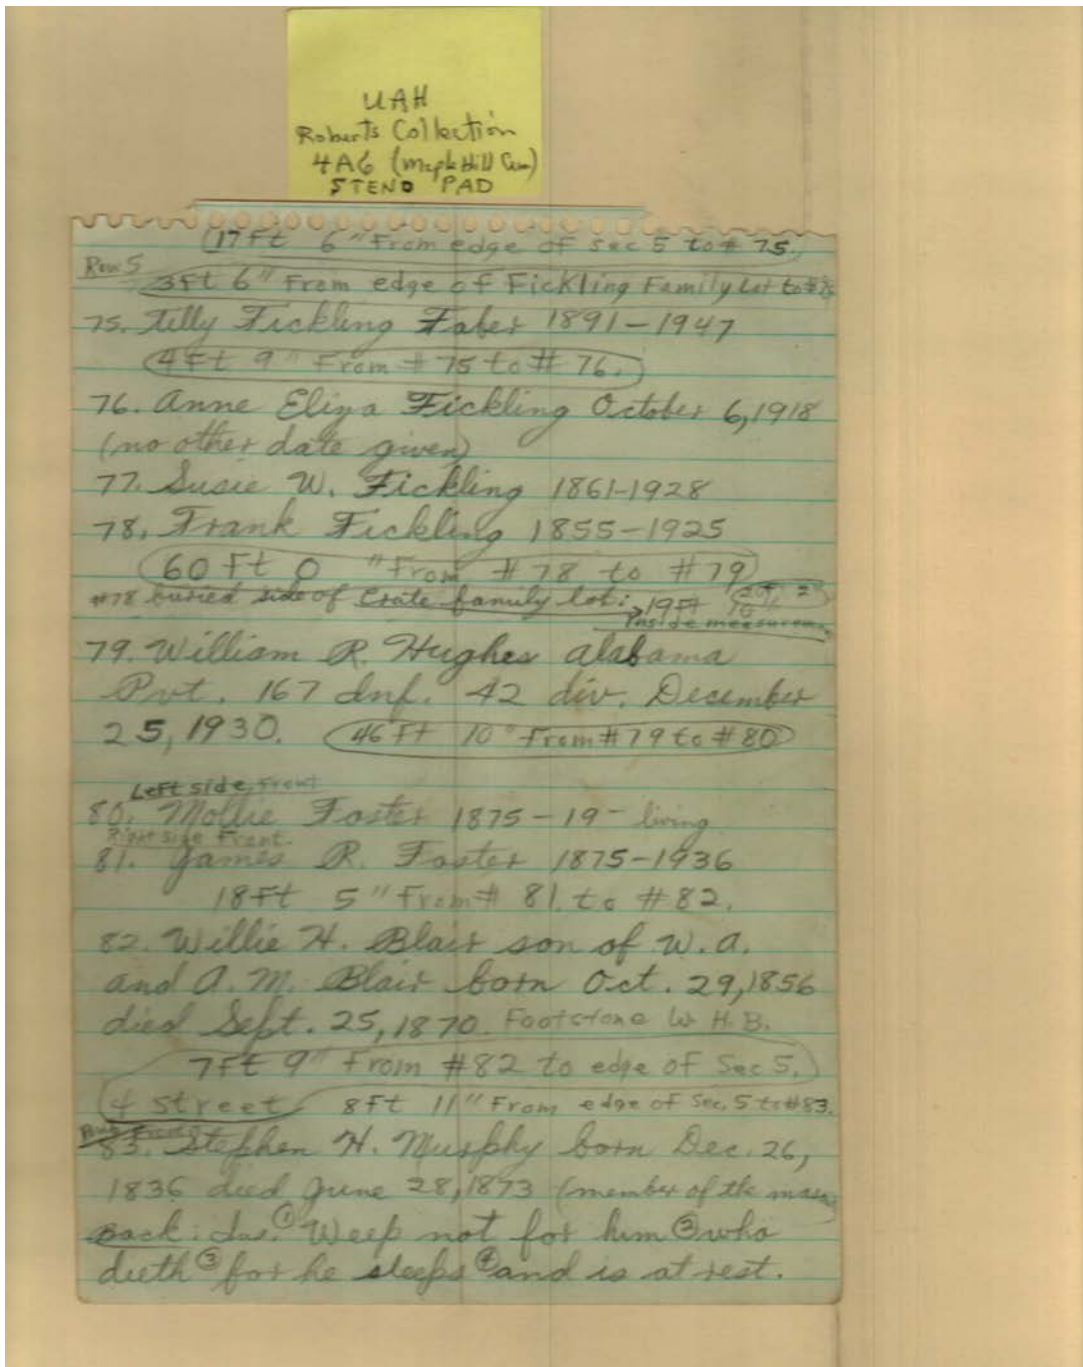 UAH
Roberts Collection
4A6 (Maple Hill Cem)
STENO PAD
17Ft 6" From edge of Sec 5 to # 75.
Row 5
3Ft 6" From edge of Fickling Family Lot to #
75. Tilly Fickling Faber 1891-1947
4Ft 9" From # 75 to # 76.
76. Anne Eliza Fickling October 6, 1918
(no other date given)
77. Susie W. Fickling 1861-1928
78. Frank Fickling 1855-1925
60 Ft 0 " From # 78 to #79
#78 buried side of Crate family lot: 19Ft
Inside
79. William R. Hughes Alabama
Pvt. 167 Inf. 42 div. December
25, 1930. 46 Ft 10" From #79 to #80
Left side, Front
80. Mollie Foster 1875-19- living
Right side Front.
81. James R. Foster 1875-1936
18Ft 5" From # 81. to #82.
82. Willie H. Blair son of W. A.
and A. M. Blair born Oct. 29, 1856
died Sept. 25, 1870. Footstone W. H. B.
7Ft 9" From #82 to edge of Sec 5.
4 Street 8Ft 11" From edge of Sec, 5 to #83.
Front
83. Stephen H. Murphy born Dec. 26,
1836 died June 28, 1873 (member of the
Back: Ins. ① Weep not for him ② who
dieth ③ for he sleeps ④ and is at rest.